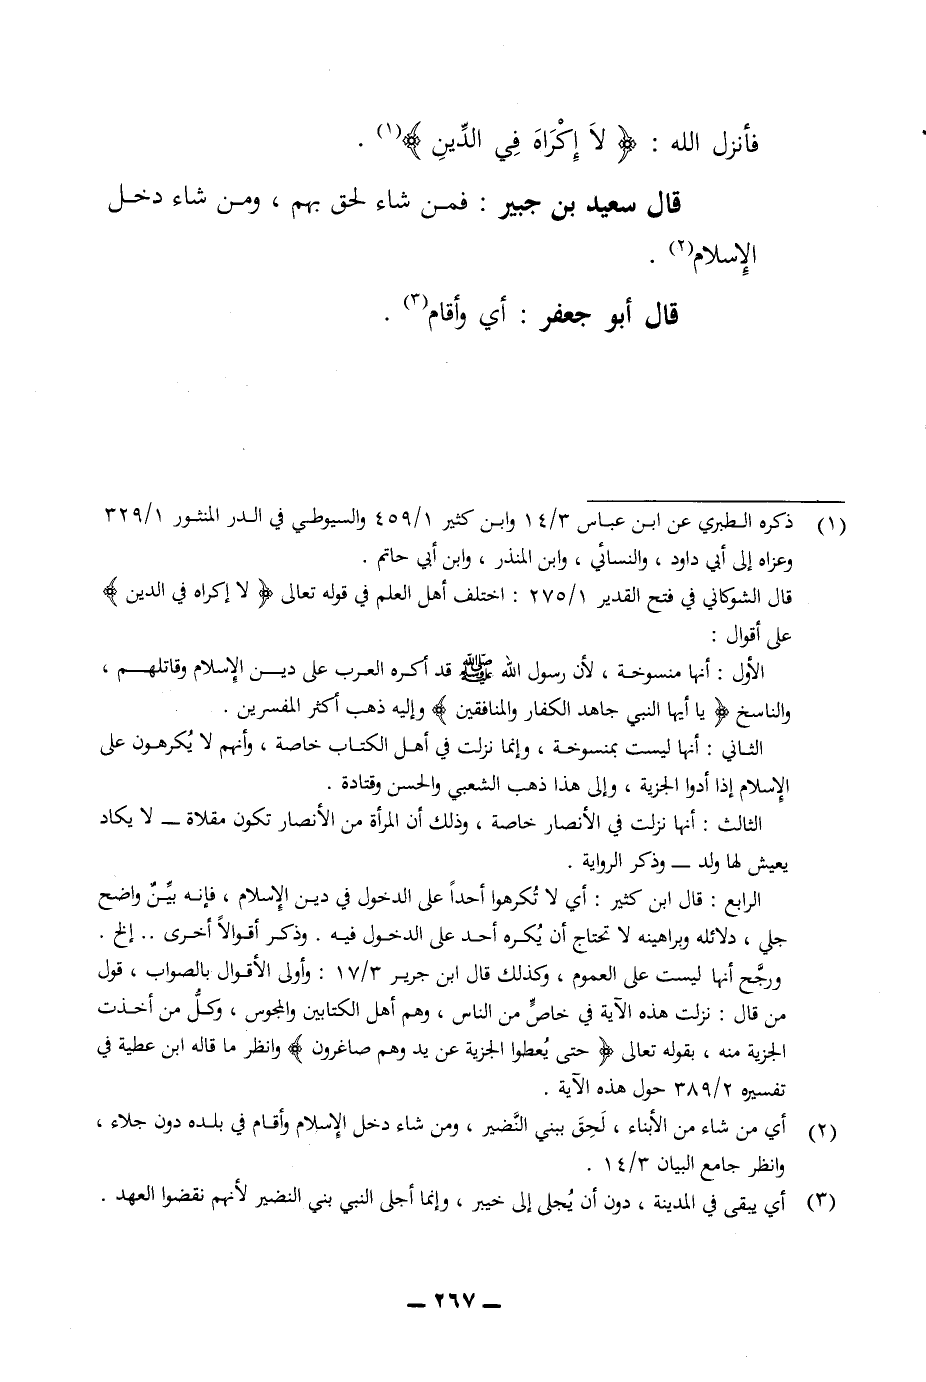 فأنزل الله : ﴿ لاَ إِكْرَاهَ فِي الدِّينِ ﴾(١) .
قال سعيد بن جبير : فمـن شاء لحق بهم ، ومـن شاء دخـل
الإِسلام(٢) .
قال أبو جعفر : أي وأقام(٣) .
(١) ذكره الـطبري عن ابـن عبـاس ١٤/٣ وابـن كثير ٤٥٩/١ والسيوطـي في الـدر المنثـور ٣٢٩/١
وعزاه إلى أبي داود ، والنسائي ، وابن المنذر ، وابن أبي حاتم .
قال الشوكاني في فتح القدير ٢٧٥/١ : اختلف أهل العلم في قوله تعالى ﴿ لا إكراه في الدين ﴾
على أقوال :
الأول : أنها منسوخـة ، لأن رسول الله ﷺ قد أكـره العـرب على ديـــن الإِسلام وقاتلهـــم ،
والناسخ ﴿ يا أيها النبي جاهد الكفار والمنافقين ﴾ وإليه ذهب أكثر المفسرين .
الثاني : أنها ليست بمنسوخـة ، وإنما نزلت في أهـل الكتاب خاصة ، وأنهم لا يُكرهـون على
الإِسلام إذا أدوا الجزية ، وإلى هذا ذهب الشعبي والحسن وقتادة .
الثالث : أنها نزلت في الأنصار خاصة ، وذلك أن المرأة من الأنصار تكون مقلاة ــ لا يكاد
يعيش لها ولد ــ وذكر الرواية .
الرابع : قال ابن كثير : أي لا تُكرهوا أحداً على الدخول في ديـن الإِسلام ، فإنـه بيِّنٌ واضح
جلي ، دلائله وبراهينه لا تحتاج أن يُكـره أحـد على الدخـول فيـه . وذكـر أقـوالاً أخـرى .. إلخ .
ورجَّح أنها ليست على العموم ، وكذلك قال ابن جريـر ١٧/٣ : وأولى الأقـوال بالصواب ، قول
من قال : نزلت هذه الآية في خاصٍّ من الناس ، وهم أهل الكتابين والمجوس ، وكلُّ من أخـذت
الجزية منه ، بقوله تعالى ﴿ حتى يُعطوا الجزية عن يد وهم صاغرون ﴾ وانظر ما قاله ابن عطية في
تفسيره ٣٨٩/٢ حول هذه الآية .
(٢) أي من شاء من الأبناء ، لَحِقَ ببني النَّضير ، ومن شاء دخل الإِسلام وأقـام في بلـده دون جلاء ،
وانظر جامع البيان ١٤/٣ .
(٣) أي يبقى في المدينة ، دون أن يُجلى إلى خيبر ، وإنما أجلى النبي بني النضير لأنهم نقضوا العهد .
ــ ٢٦٧ ــ